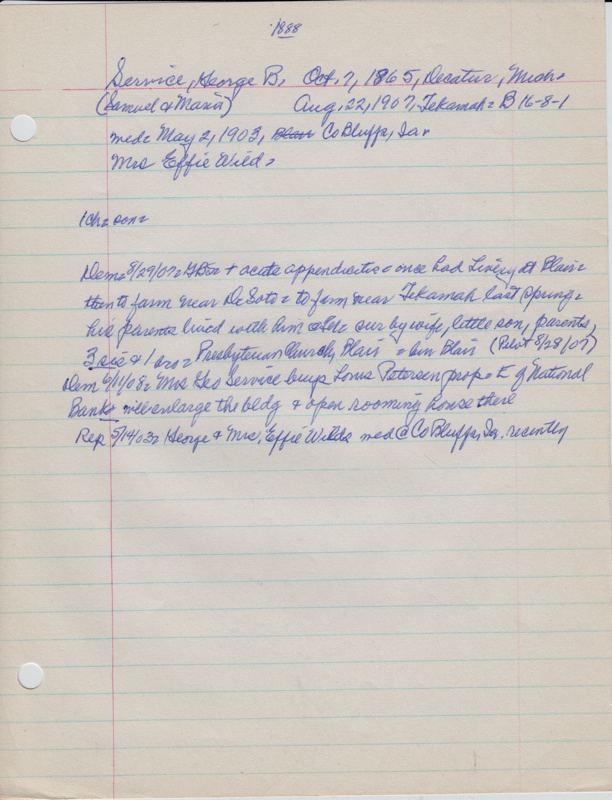 1888
Service, George B. Oct. 7, 1865, Decatur, Mich.
(Samuel & Maria) Aug. 22, 1907, Tekamah = B 16-8-1
med = May 2, 1903, Blair Co Bluffs, Ia.
Mrs Effie Wild =
1 Ch = son =
Dem = 8/29/07 = acute appendicitis = once had Livery at Blair =
then to farm near DeSoto = to farm near Tekamah last spring =
his parents lived with him & sur by wife, little son, parents,
3 sis & 1 bro = Presbyterian Church, Blair = bur Blair (Pilot 8/28/07)
Dem 6/11/08 = Mrs Geo Service buys Louis Petersen prop = E of National
Bank = will enlarge the bldg & open rooming house there
Rep 5/14/03 = George & Mrs. Effie Wilds med @ Co Bluffs, Ia. recently